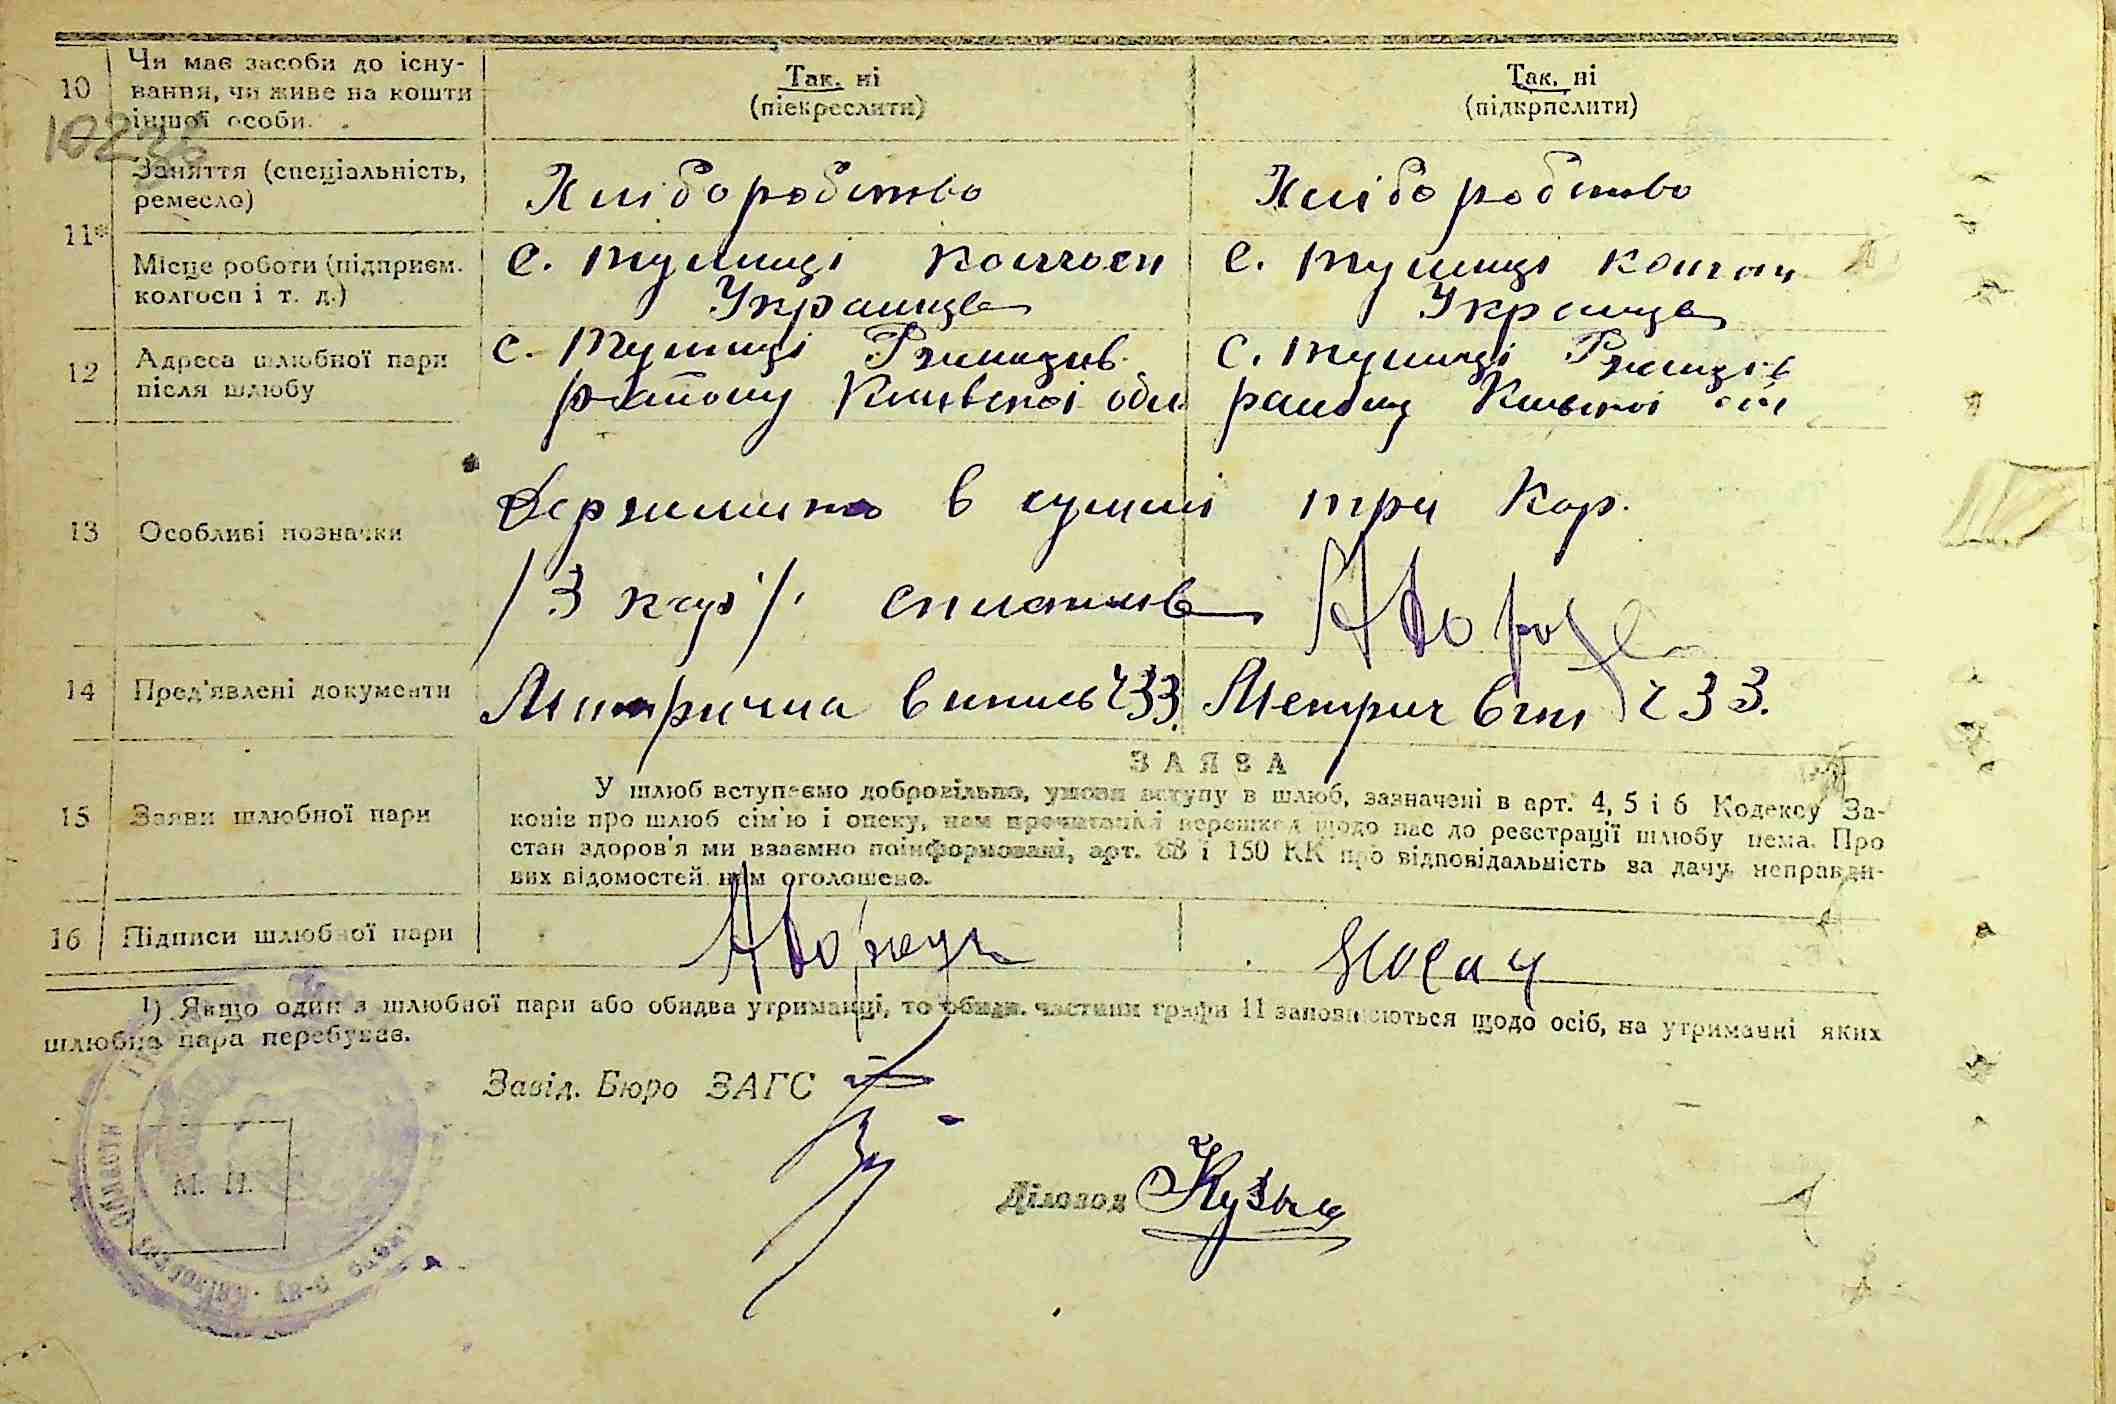 10 Чи має засоби до існу-
вання, чи живе на кошти
іншої особи.
Так. ні
(піекреслити)
Так. ні
(підкрпслити)
10236
11* Заняття (спеціальність,
ремесло)
Хліборобство
Хліборобство
Місце роботи (підприєм.
колгосп і т. д.)
с. Тулинці колгосп
Українця
с. Тулинці
Українця
12 Адреса шлюбної пари
після шлюбу
с. Тулинці Ржищів
району Київської обл
с. Тулинці Ржищів
району Київської
13 Особливі позначки
Держмито в сумі три кар.
/3 кар/. сплатив
14 Пред'явлені документи
Митрична випись Ч33.
Метрич вип Ч 33.
15 Заяви шлюбної пари
ЗАЯВА
У шлюб вступаємо добровільно, умови вступу в шлюб, зазначені в арт. 4, 5 і 6 Кодексу За-
конів про шлюб сім'ю і опеку, нам прочитані перешкод щодо нас до реєстрації шлюбу нема. Про
стан здоров'я ми взаємно поінформовані, арт. 88 і 150 КК про відповідальність за дачу, неправди-
вих відомостей нам оголошено.
16 Підписи шлюбної пари
Носач
¹) Якщо один з шлюбної пари або обидва утриманці, то обидв. частини графи 11 заповнюються щодо осіб, на утриманні яких
шлюбна пара перебуває.
Завід. Бюро ЗАГС
М. П.
Діловод